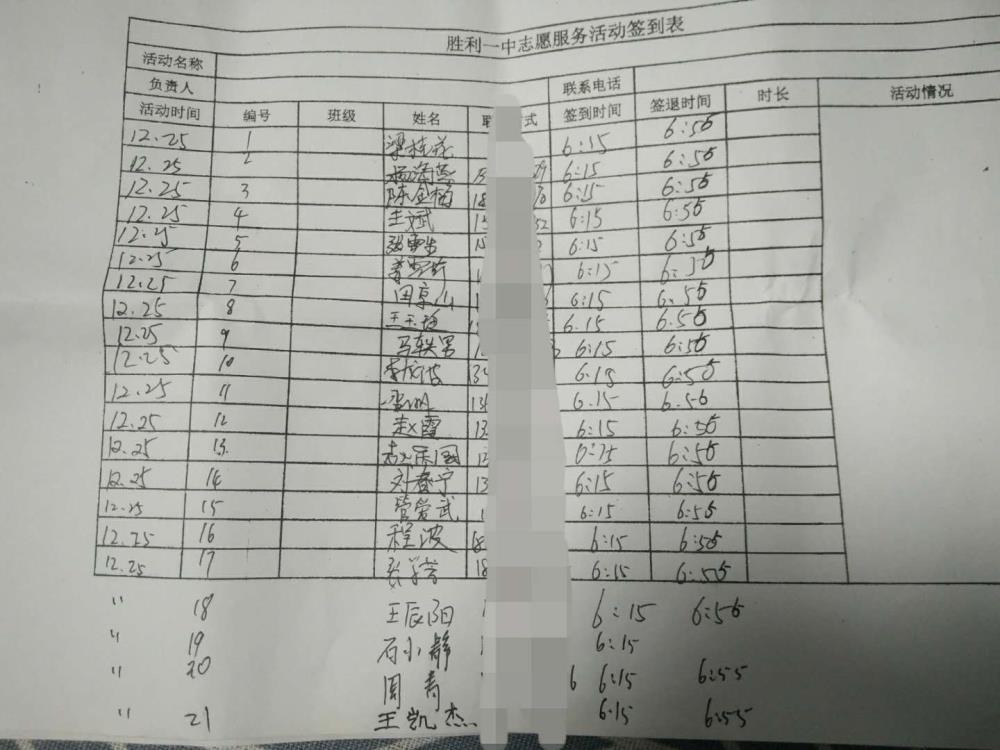 胜利一中志愿服务活动签到表
活动名称
负责人 联系电话
活动时间 编号 班级 姓名 式 签到时间 签退时间 时长 活动情况
12.25 1 梁桂花 6:15 6:55
12.25 2 6:15 6:55
12.25 3 陈金梅 18 6:15 6:55
12.25 4 王斌 15 6:15 6:55
12.25 5 6:15 6:55
12.25 6 6:15 6:55
12.25 7 田京山 6:15 6:55
12.25 8 王玉 6.15 6.55
12.25 9 马轶男 6:15 6:55
12.25 10 6:15 6:55
12.25 11 6.15 6.55
12.25 12 赵霞 13 6:15 6:55
12.25 13. 6:15 6:55
12.25 14 刘春宁 13 6:15 6:55
12.25 15 管爱武 6:15 6:55
12.25 16 程波 18 6:15 6:55
12.25 17 18 6:15 6:55
" 18 王辰阳 6:15 6:55
" 19 石小静 6:15
" 20 周青 6 6:15 6:55
" 21 王凯杰 6:15 6:55